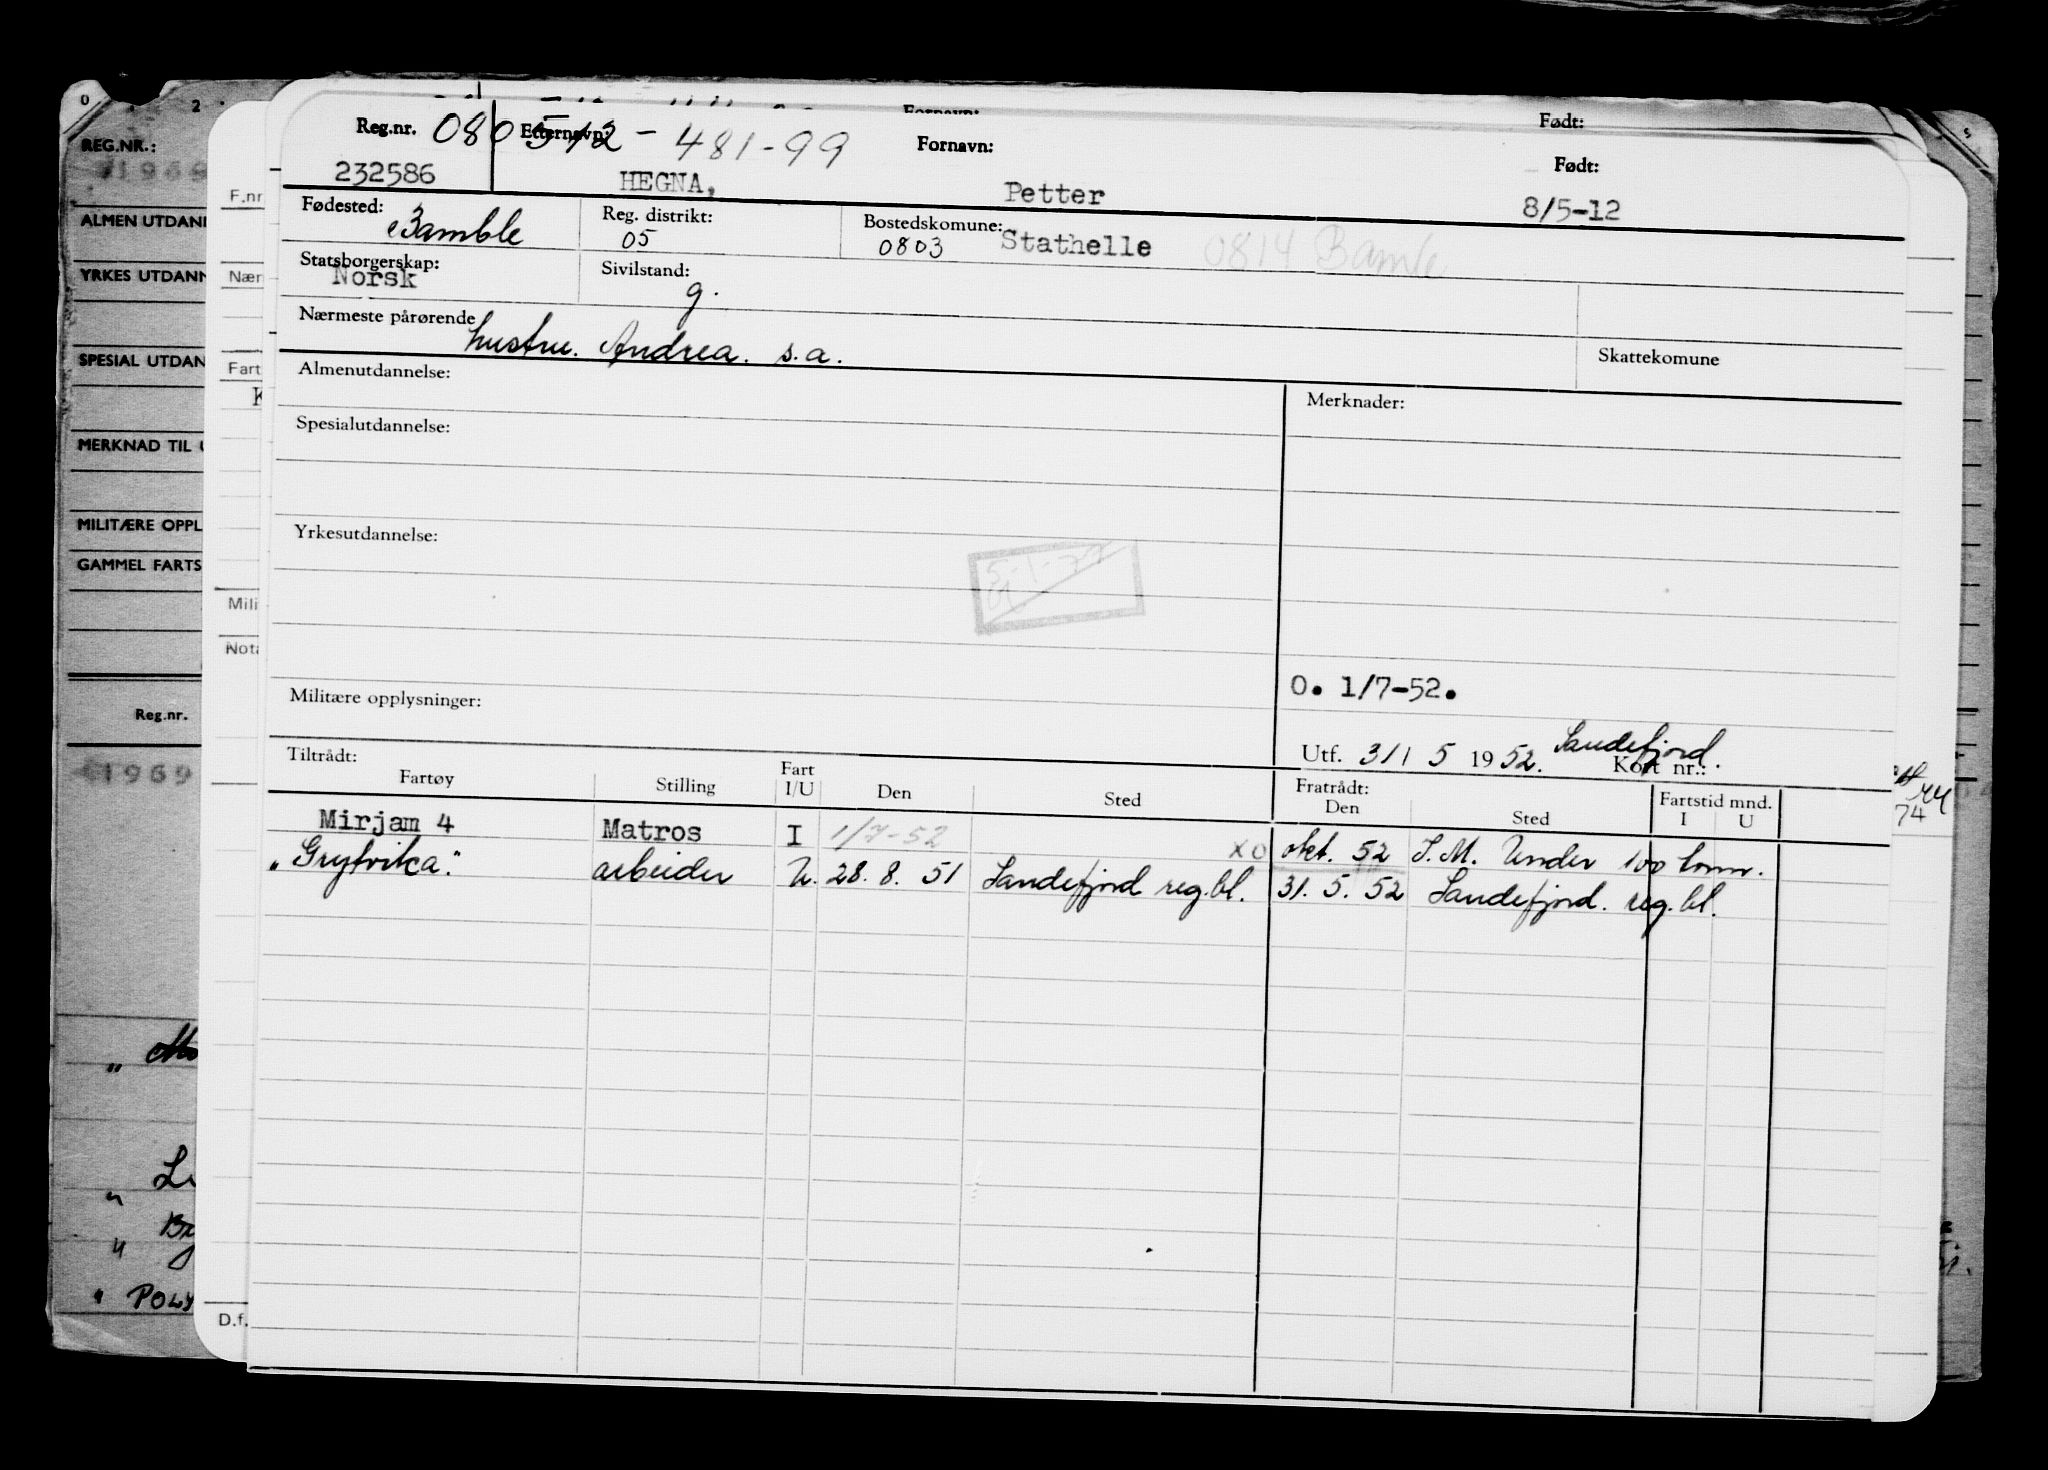 O 1 2
REG.NR.:
1969
ALMEN UTDAN
YRKES UTDANN
SPESIAL UTDAN
MERKNAD TIL
MILITÆRE OPPL
GAMMEL FARTS
Reg.nr.
1969
POLY
F.nr
Nær
Fart
K
Mili
Nota
D.f.
Fornavn:
Født:
Reg.nr. 080512-481-99 Etternavn: Fornavn: Født:
232586 HEGNA, Petter 8/5-12
Fødested: Bamble Reg. distrikt: 05 Bostedskomune: 0803 Stathelle 0814 Bamle
Statsborgerskap: Norsk Sivilstand: g.
Nærmeste pårørende hustru. Andrea. s.a. Skattekomune
Almenutdannelse: Merknader:
Spesialutdannelse:
Yrkesutdannelse:
Militære opplysninger: O. 1/7-52.
Utf. 31/5 1952. Sandefjord. Kort nr.:
Tiltrådt: Fratrådt:
Fartøy Stilling Fart I/U Den Sted Den Sted Fartstid mnd. I U
Mirjam 4 Matros I 1/7-52 XO okt. 52 S.M. Under 100 tonn.
"Grytvika". arbeider U. 28. 8. 51 Sandefjord reg.bl. 31. 5. 52 Sandefjord. reg.bl.
74